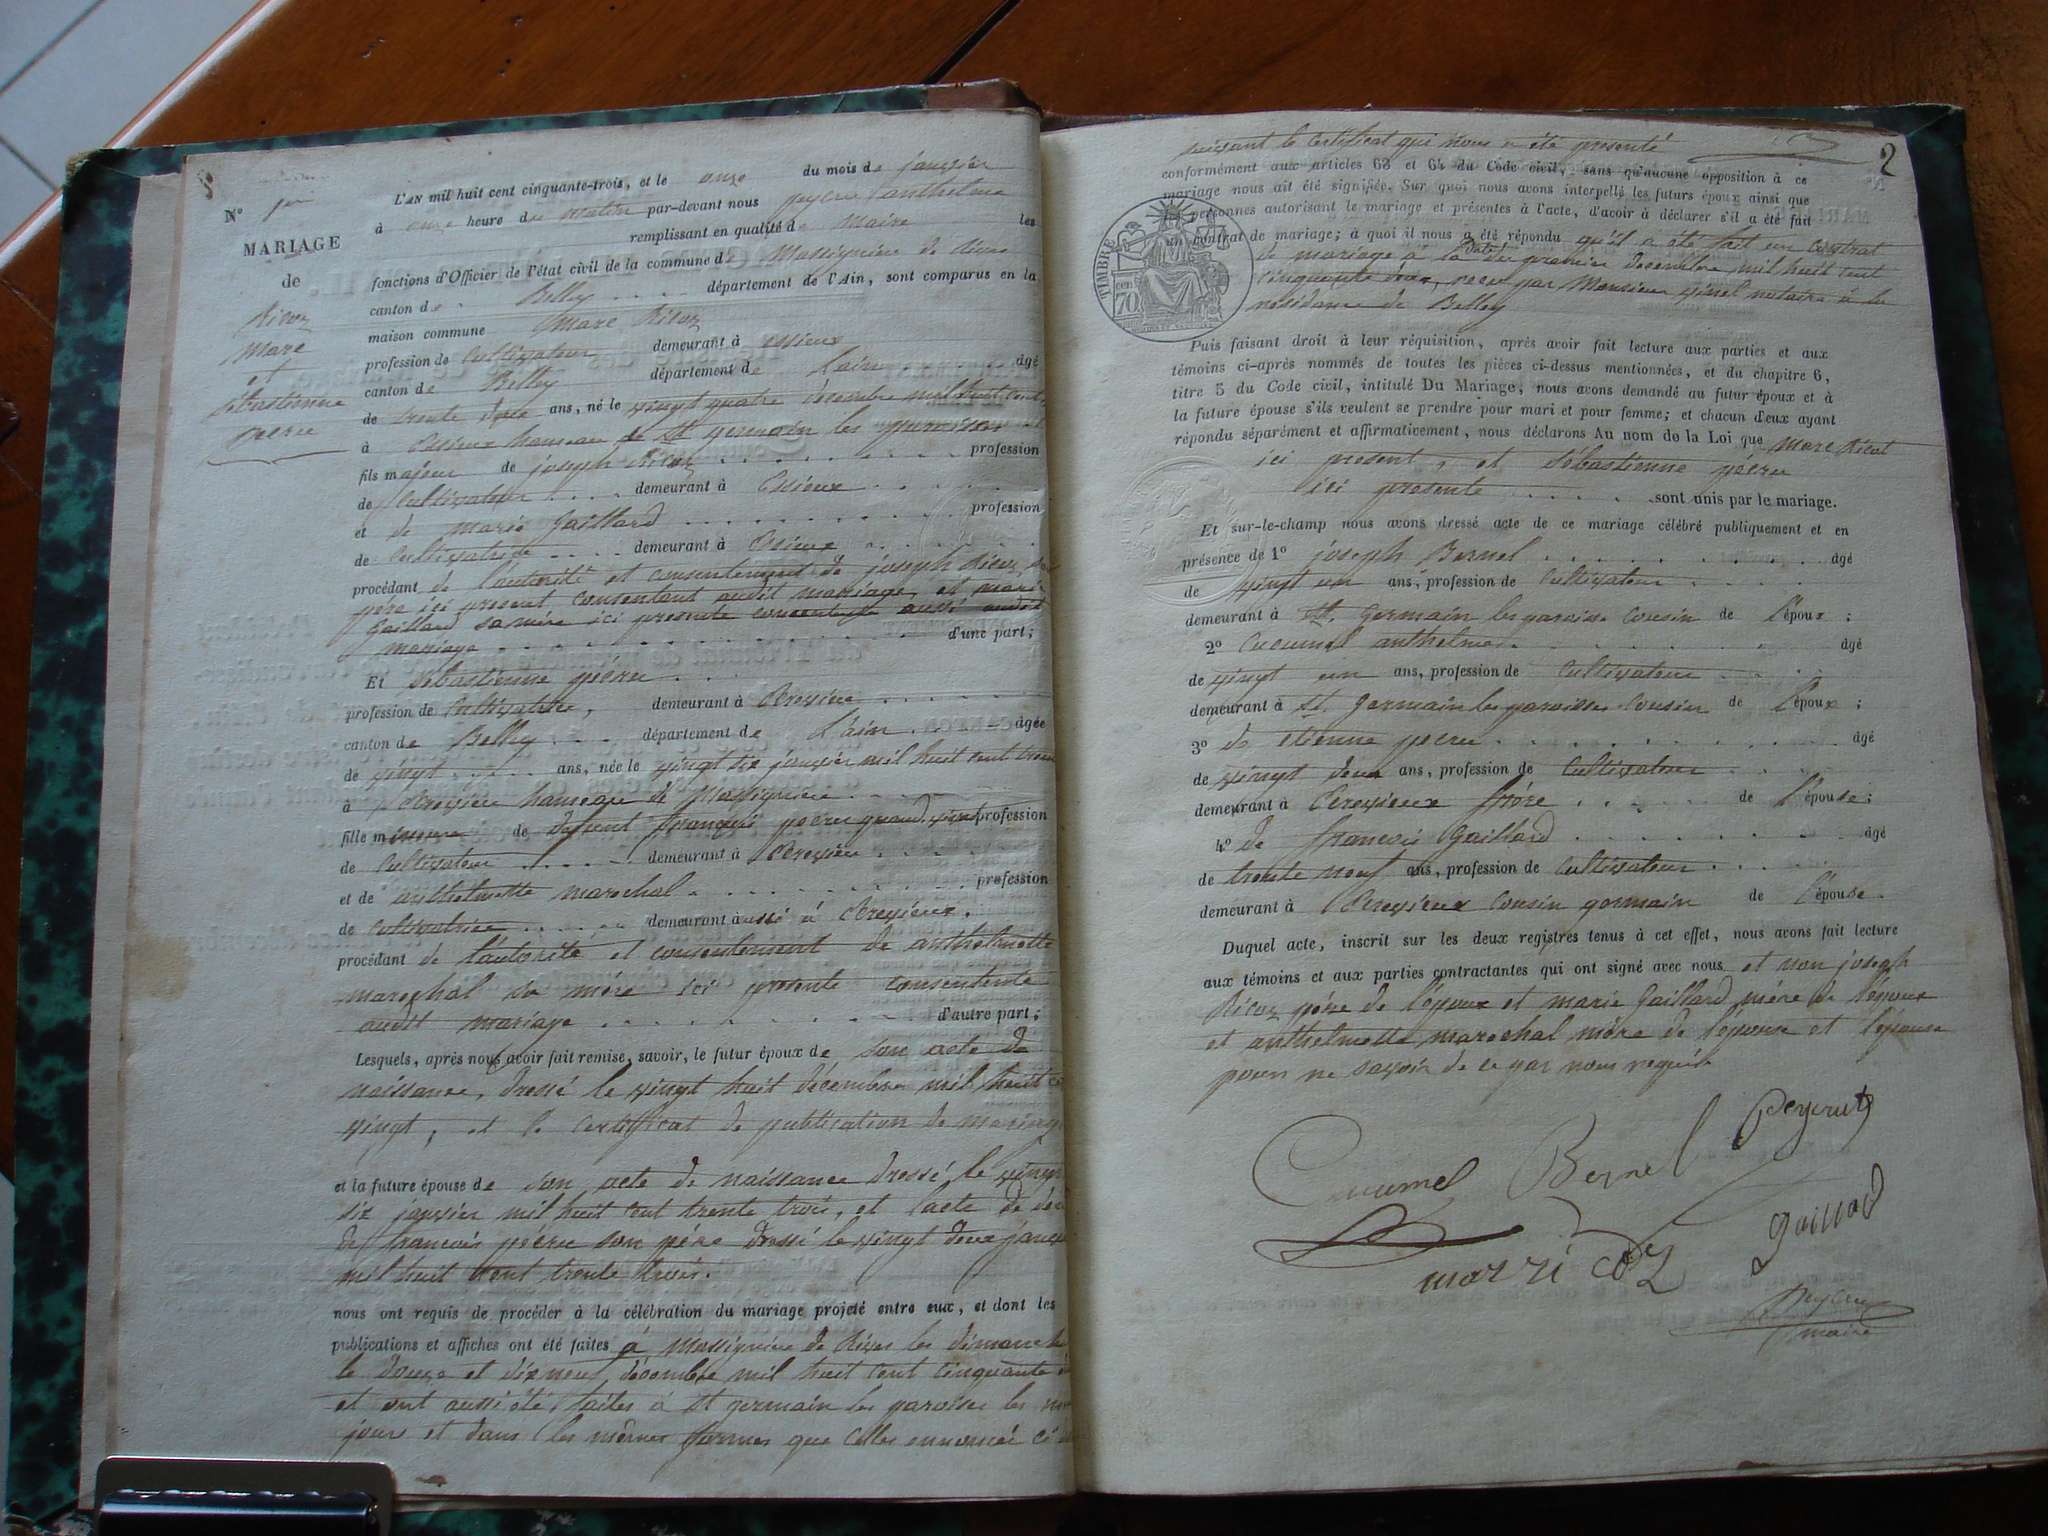 N° 1er
MARIAGE
de
Ricoz
Marc
et
sébastienne
peeru
L'AN mil huit cent cinquante-trois, et le onze du mois de janvier
à onze heure du matin par-devant nous peycru anthelme
remplissant en qualité de Maire les
fonctions d'Officier de l'état civil de la commune de Massignieu de Rives
canton de Belley département de l'Ain, sont comparus en la
maison commune Marc Ricoz
profession de Cultivateur demeurant à essieux
canton de Belley département de L'ain âgé
de trente deux ans, né le vingt quatre décembre mil huit cent
à Essieux hameau de St germain les paroisses
fils majeur de joseph Ricoz profession
de Cultivateur demeurant à Essieux
et de marie gaillard profession
de Cultivatrice demeurant à Essieux
procédant de l'autorité et consentement de joseph Ricoz son
père ici présent consentant audit mariage, et marie
gaillard sa mère ici présente consentante aussi audit
mariage d'une part;
Et sébastienne péeru
profession de Cultivatrice, demeurant à Creysieu
canton de Belley département de L'ain âgée
de vingt ans, née le vingt six janvier mil huit cent trente
à Creysieu hameau de Massignieu
fille mineure de défunt françois péeru quand vivait profession
de Cultivateur demeurant à Creysieu
et de anthelmette marechal profession
de Cultivatrice demeurant aussi à Creysieux.
procédant de l'autorité et consentement de anthelmette
marechal sa mère ici présente consentente
audit mariage d'autre part;
Lesquels, après nous avoir fait remise, savoir, le futur époux de son acte de
naissance, dressé le vingt huit décembre mil huit cent
vingt, et le certifficat de publication de mariage
et la future épouse de son acte de naissance dressé le vingt
six janvier mil huit cent trente trois, et l'acte de décé
de françois péeru son père dressé le vingt deux janvier
mil huit cent trente trois.
nous ont requis de procéder à la célébration du mariage projeté entre eux, et dont les
publications et affiches ont été faites à Massignieu de Rives les dimanche
le douze et dixneuf décembre mil huit cent cinquante
et ont aussi été faites à St germain les paroisses les
jours et dans les mêmes formes que celles ennoncée ci
2
suivant le certificat qui nous a été présenté
conformément aux articles 63 et 64 du Code civil, sans qu'aucune opposition à ce
mariage nous ait été signifiée. Sur quoi nous avons interpellé les futurs époux ainsi que
personnes autorisant le mariage et présentes à l'acte, d'avoir à déclarer s'il a été fait
un contrat de mariage; à quoi il nous a été répondu qu'il a été fait un contrat
de mariage à la daté du premier décembre mil huit cent
cinquante deux, recu par Monsieur vinel notaire à la
residence de Belley
TIMBRE
cen
70
Puis faisant droit à leur réquisition, après avoir fait lecture aux parties et aux
témoins ci-après nommés de toutes les pièces ci-dessus mentionnées, et du chapitre 6,
titre 5 du Code civil, intitulé Du Mariage, nous avons demandé au futur époux et à
la future épouse s'ils veulent se prendre pour mari et pour femme; et chacun d'eux ayant
répondu séparément et affirmativement, nous déclarons Au nom de la Loi que Marc Ricoz
ici present, et sébastienne péeru
ici presente sont unis par le mariage.
Et sur-le-champ nous avons dressé acte de ce mariage célébré publiquement et en
présence de 1° joseph Bernel âgé
de vingt un ans, profession de Cultivateur
demeurant à St. germain les paroisse cousin de l'époux;
2° Cucumel anthelme âgé
de vingt un ans, profession de Cultivateur
demeurant à St germain les paroisses cousin de l'époux;
3° de étienne peeru âgé
de vingt deux ans, profession de Cultivateur
demeurant à Creysieux frère de l'épouse;
4° de françois gaillard âgé
de trente neuf ans, profession de Cultivateur
demeurant à Creysieux cousin germain de l'épouse.
Duquel acte, inscrit sur les deux registres tenus à cet effet, nous avons fait lecture
aux témoins et aux parties contractantes qui ont signé avec nous et non joseph
Ricoz père de l'époux et marie gaillard mère de l'époux
et anthelmette marechal mère de l'épouse et l'épouse
pour ne savoir de ce par nous requis
Cucumel Bernel Peycrut
gaillard
marricoz
Peycru
maire